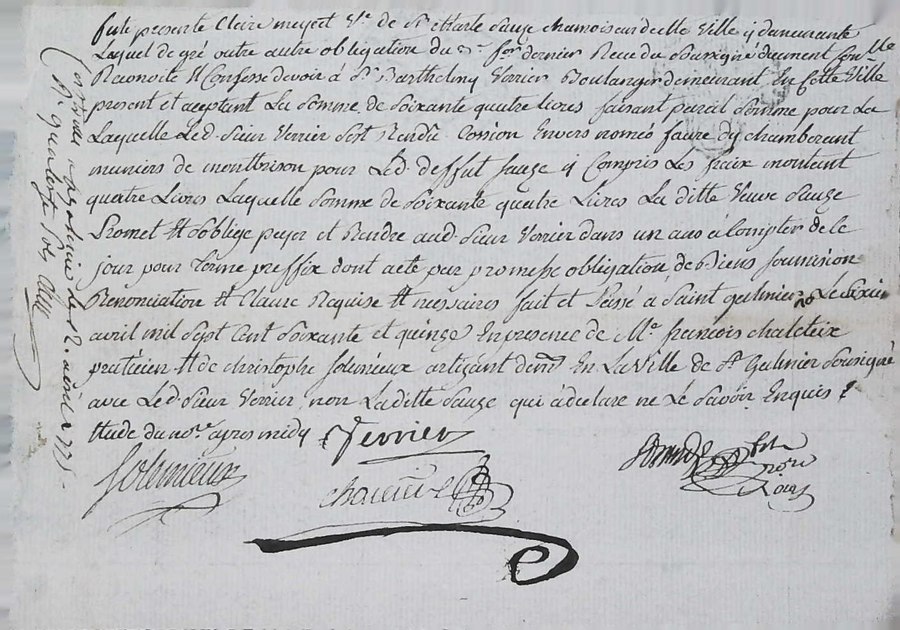 fute presente Claire meyert V.e de S.r Sauze chamoiseur de cette Ville y demeurante
Laquel de gré outre autre obligation du Reçue du Soussigné
Reconoite Et Confesse devoir à S.r Barthelmy Verrier Boulanger demeurant En Cette Ville
present et aceptant La Somme de Soixante quatre livres faisant pareil Somme pour La
Laquelle Led. Sieur Verrier Sest Rendu Cossion Envers nomeé faure du chamberant
muniers de montbrison pour Led. deffut Sauze y Compris Les fraix montent
quatre Livres Laquelle Somme de Soixante quatre Livres La ditte Veuve Sauze
Promet Et Soblige payer et Rendre aud. Sieur Verrier dans un ans à Compter de Ce
jour pour Terme preffix dont acte par promesse obligation de Biens Soumision
Renonciation Et Clause Requise Et nessaires fait et Passé à Saint galmier Le Sixieme
avril mil Sept Cent Soixante et quinze En presence de M.e françois chaleteix
praticien Et de christophe Solemieux artisant dem.t En La Ville de S.t Galmier Soussigné
avec Led. Sieur Verrier non Laditte Sauze qui à declare ne Le Savoir Enquis &
Etude du no.re apres midy
Verrier
Solemieux
Controllé a S.t galmier le 12. avril 1775.
R. quatorze Sols